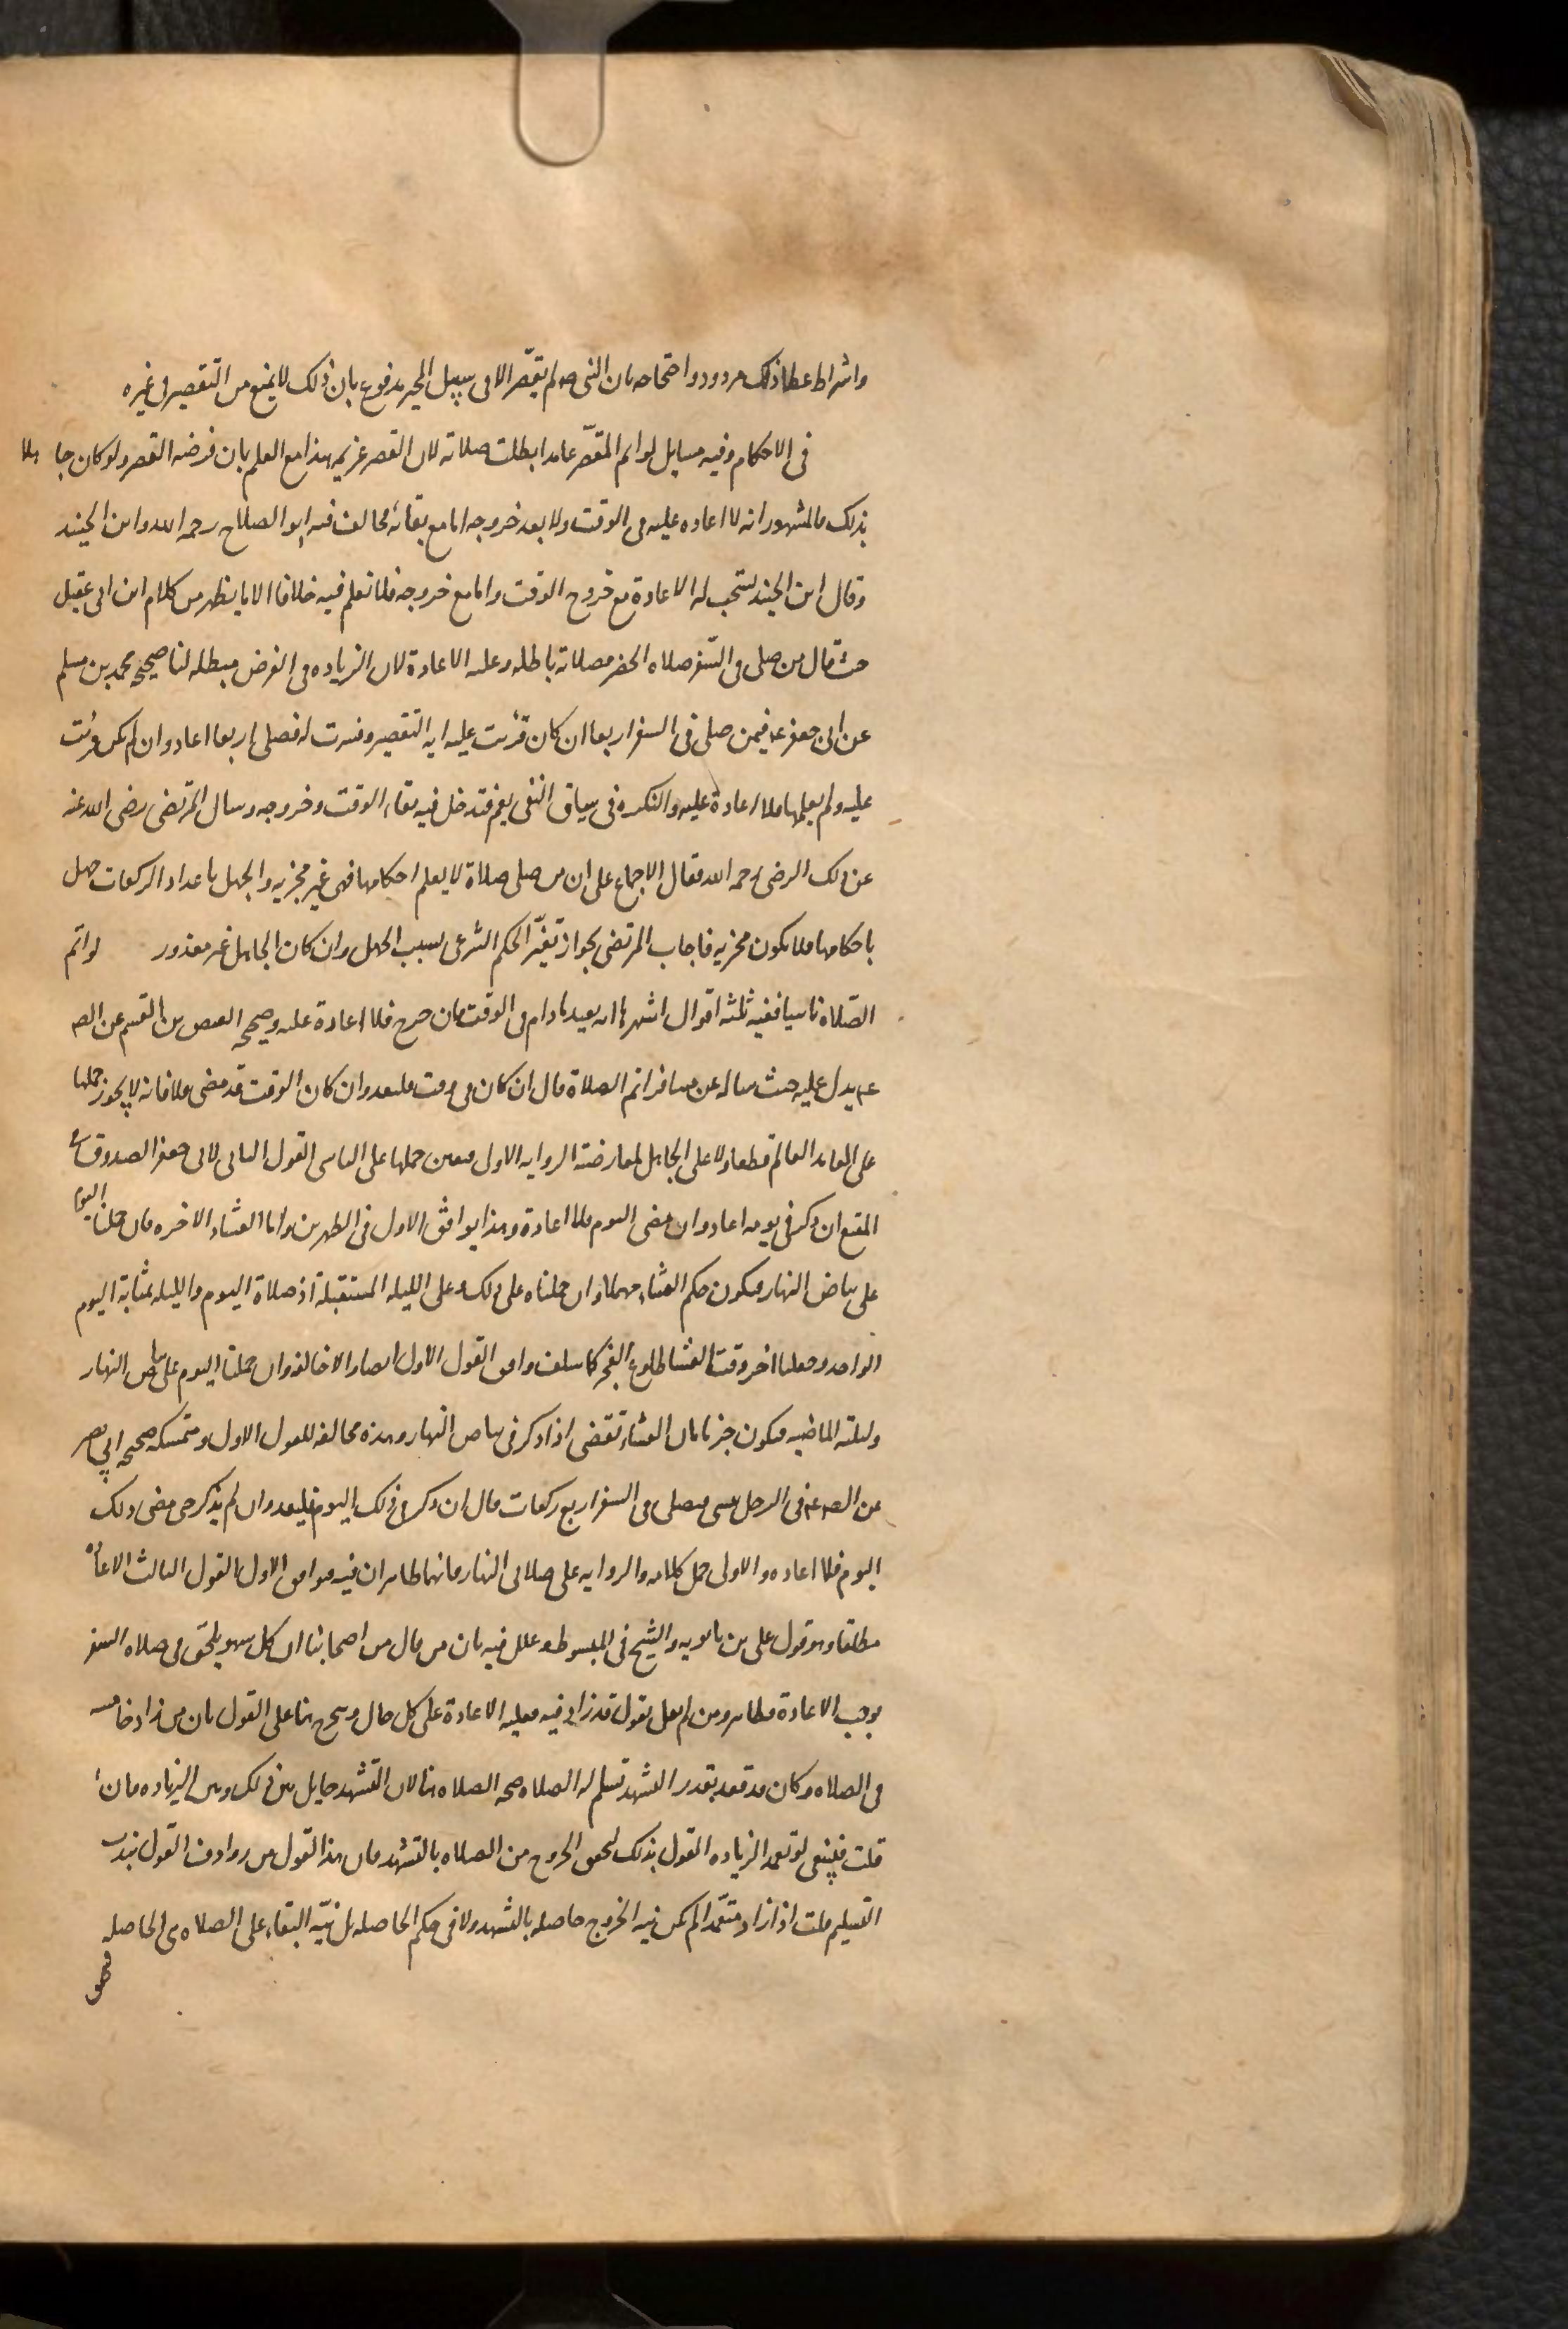 واشراط عطا ذلك مردود واحتجاجه بان النبي صه لم يقصّر الا في سبيل الخير مدفوع بان ذلك لا يمنع من التقصير في غيره
في الاحكام وفيه مسايل لو اتم المقصّر عامدا بطلت صلاته لان القصر عزيمه هذا مع العلم بان فرضه القصر ولو كان جاهلا
بذلك فالمشهور انه لا اعاده عليه في الوقت ولا بعد خروجه اما مع بقائه فخالف فيه ابو الصلاح رحمه الله وابن الجنيد
وقال ابن الجنيد يستحب له الاعادة مع خروج الوقت واما مع خروجه فلا نعلم فيه خلافا الا ما يظهر من كلام ابن ابي عقيل
حيث قال من صلى في السّفر صلاه الحضر فصلاته باطله وعليه الاعادة لان الزياده في الفرض مبطله لنا صحيحه محمد بن مسلم
عن ابي جعفر عه فيمن صلى في السفر اربعا ان كان قرئت عليه ايه التقصير وفسرت له فصلى اربعا اعاد وان لم يكن قرئت
عليه ولم يعلمها فلا اعادة عليه والنكره في سياق النفي يعم فتدخل فيه بقاء الوقت وخروجه وسال المرتضى رضى الله عنه
عن ذلك الرضى رحمه الله فقال الاجماع على ان من صلى صلاة لا يعلم احكامها فهى غير مجزيه والجهل باعداد الركعات جهل
باحكامها فلا يكون مجزيه فاجاب المرتضى بجواز تغيّر الحكم الشرعى بسبب الجهل وان كان الجاهل غير معذور لو اتم
الصّلاة ناسيا ففيه ثلثه اقوال اشهرها انه يعيد مادام في الوقت فان خرج فلا اعادة عليه وصحيحه العيص بن القسم عن الصه
عه يدل عليه حيث ساله عن مسافر اتم الصلاة قال ان كان في وقت فليعد وان كان الوقت قد مضى فلا فانه لا يجوز حملها
على العامد العالم قطعا ولا على الجاهل لمعارضته الروايه الاولى فتعين حملها على الناسى القول الثانى لابى جعفر الصدوق في
المقنع ان ذكر في يومه اعاد وان مضى اليوم فلا اعادة وهذا يوافق الاول في الظهرين واما العشاء الاخره فان حملنا اليوم
على بياض النهار فيكون حكم العشاء مهملا وان حملناه على ذلك وعلى الليله المستقبلة اذ صلاة اليوم والليله بمثابة اليوم
الواحد وجعلنا اخر وقت العشا طلوع الفجر كما سلف وافق القول الاول ايضا والا خالفه وان حملنا اليوم على بياض النهار
وليلته الماضيه فيكون جزما بان العشاء تقضى اذا ذكر في بياض النهار وهذه مخالفه للقول الاول ومتمسكه صحيحه ابي بصير
عن الصه عه في الرجل ينسى فيصلى في السفر اربع ركعات قال ان ذكر في ذلك اليوم فليعد وان لم يذكر حتى مضى ذلك
اليوم فلا اعاده والاولى حمل كلامه والروايه على صلاتى النهار فانهما ظاهران فيه فيوافق الاول القول الثالث الاعاده
مطلقا وهو قول على بن بابويه والشيخ في المبسوط وعلل فيه بان من قال من اصحابنا ان كل سهو يلحق في صلاه السفر
يوجب الاعادة فظاهر ومن لم يقل يقول قد زاد فيه فعليه الاعادة على كل حال ويتخرج هنا على القول بان من زاد خامسه
في الصلاه وكان قد قعد بقدر التشهد تسلم له الصلاه صحه الصلاه هنا لان التشهد حايل بين ذلك وبين الزياده فان
قلت فينبغى لو تعمد الزياده القول بذلك لتحقق الخروج من الصلاه بالتشهد فان هذا القول من روادف القول بندب
التسليم قلت اذا زاد متعمّدا لم يكن نيه الخروج حاصله بالتشهد ولا في حكم الحاصله بل نيّه البقاء على الصلاه هى الحاصله